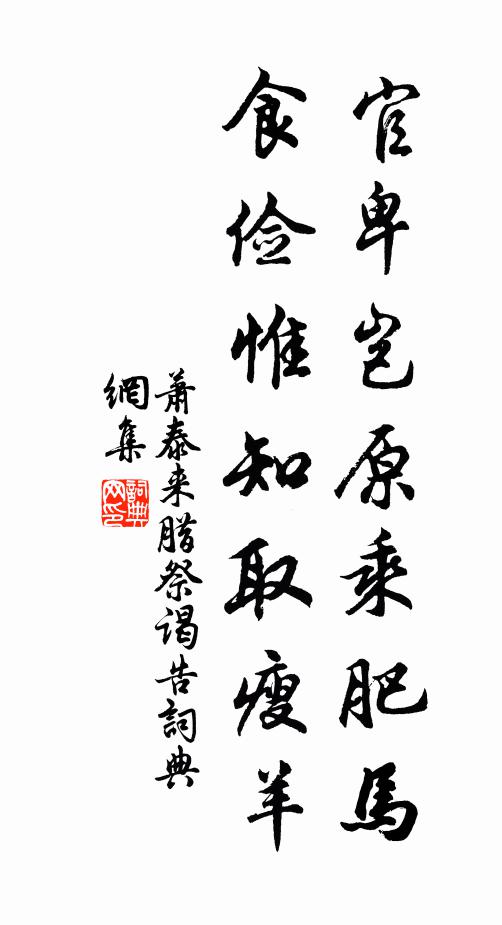 官卑岂原乘肥馬
食儉惟知取瘦羊
蕭泰来腊祭谒告詞典
網集
詞典網印